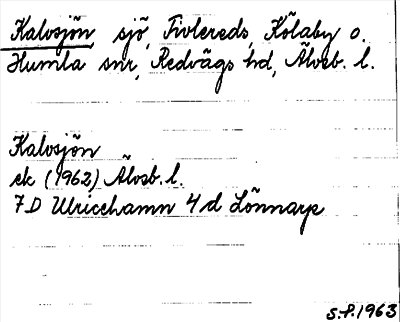 Kalvsjön, sjö, Tivlereds, Kölaby o.
Humla snr, Redvägs hd, Älvsb. l.
Kalvsjön
ek (1962) Älvsb. l.
7D Ulricehamn 4d Lönnarp
S.P. 1963